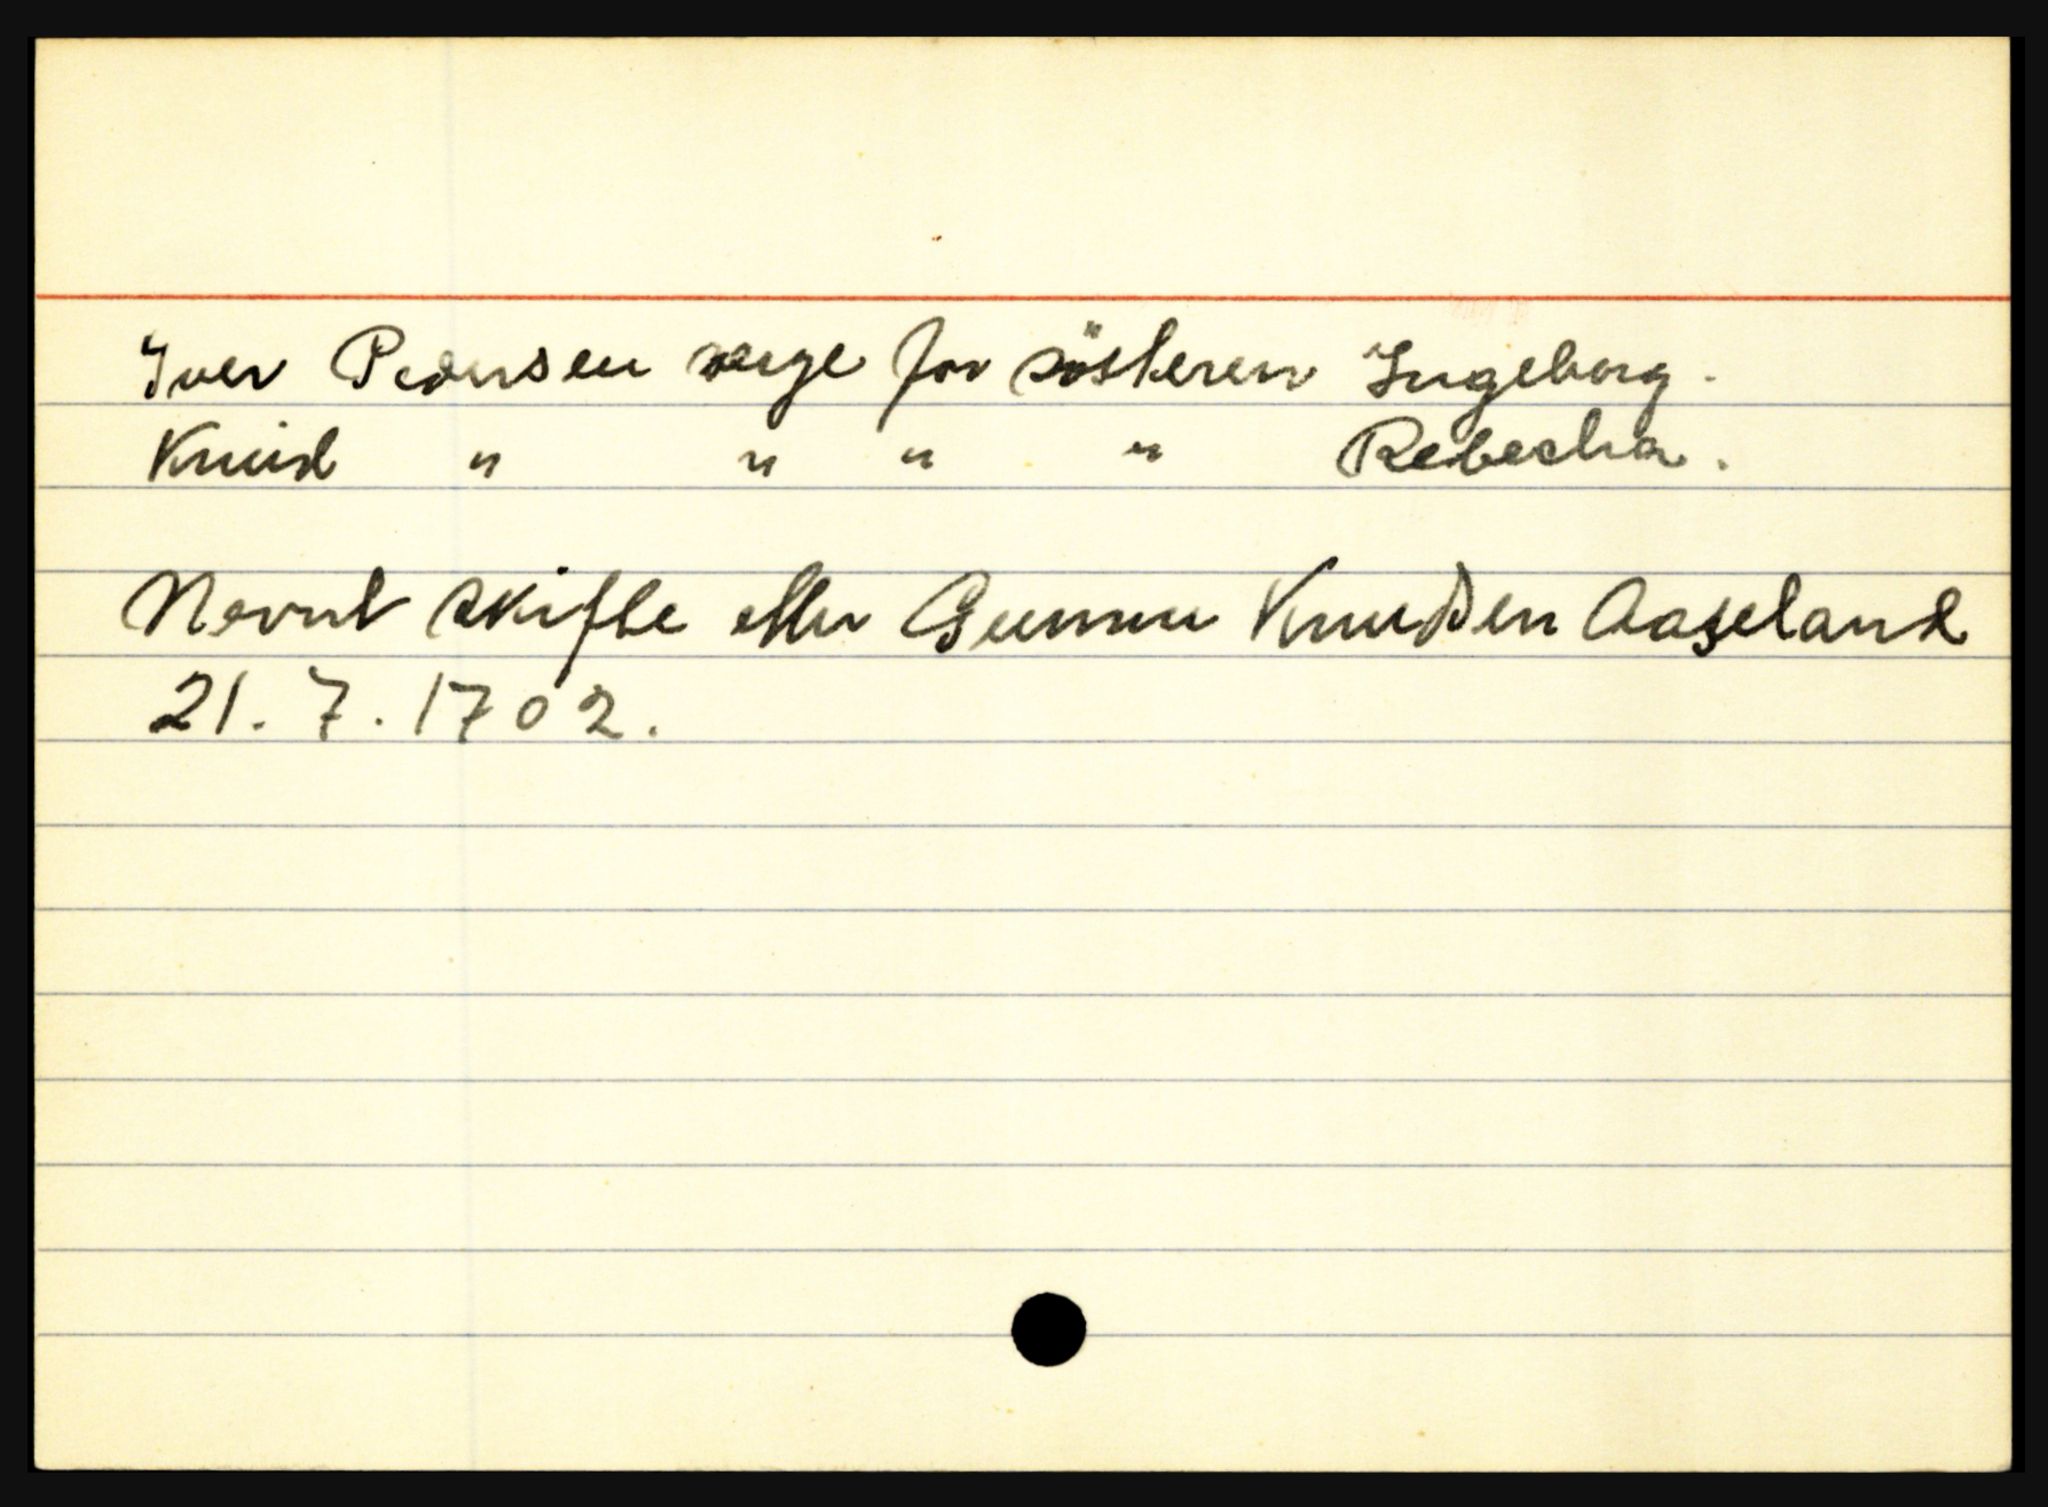 Iver Pedersen verge for søsteren Ingeborg.
Knud " " " " Rebecka.
Nevnt skifte etter Gunnu Knudsen Aaseland
21. 7. 1702.